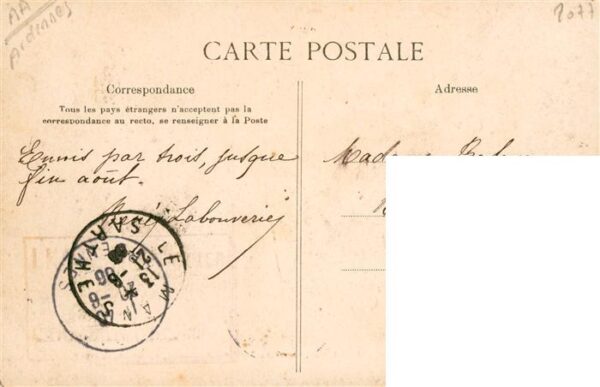 AA
Ardennes
2077
CARTE POSTALE
Correspondance
Tous les pays étrangers n'acceptent pas la
correspondance au recto, se renseigner à la Poste
Adresse
Ennuis par trois, jusque
fin août.
Labouverie
LE MANS
SARTHE